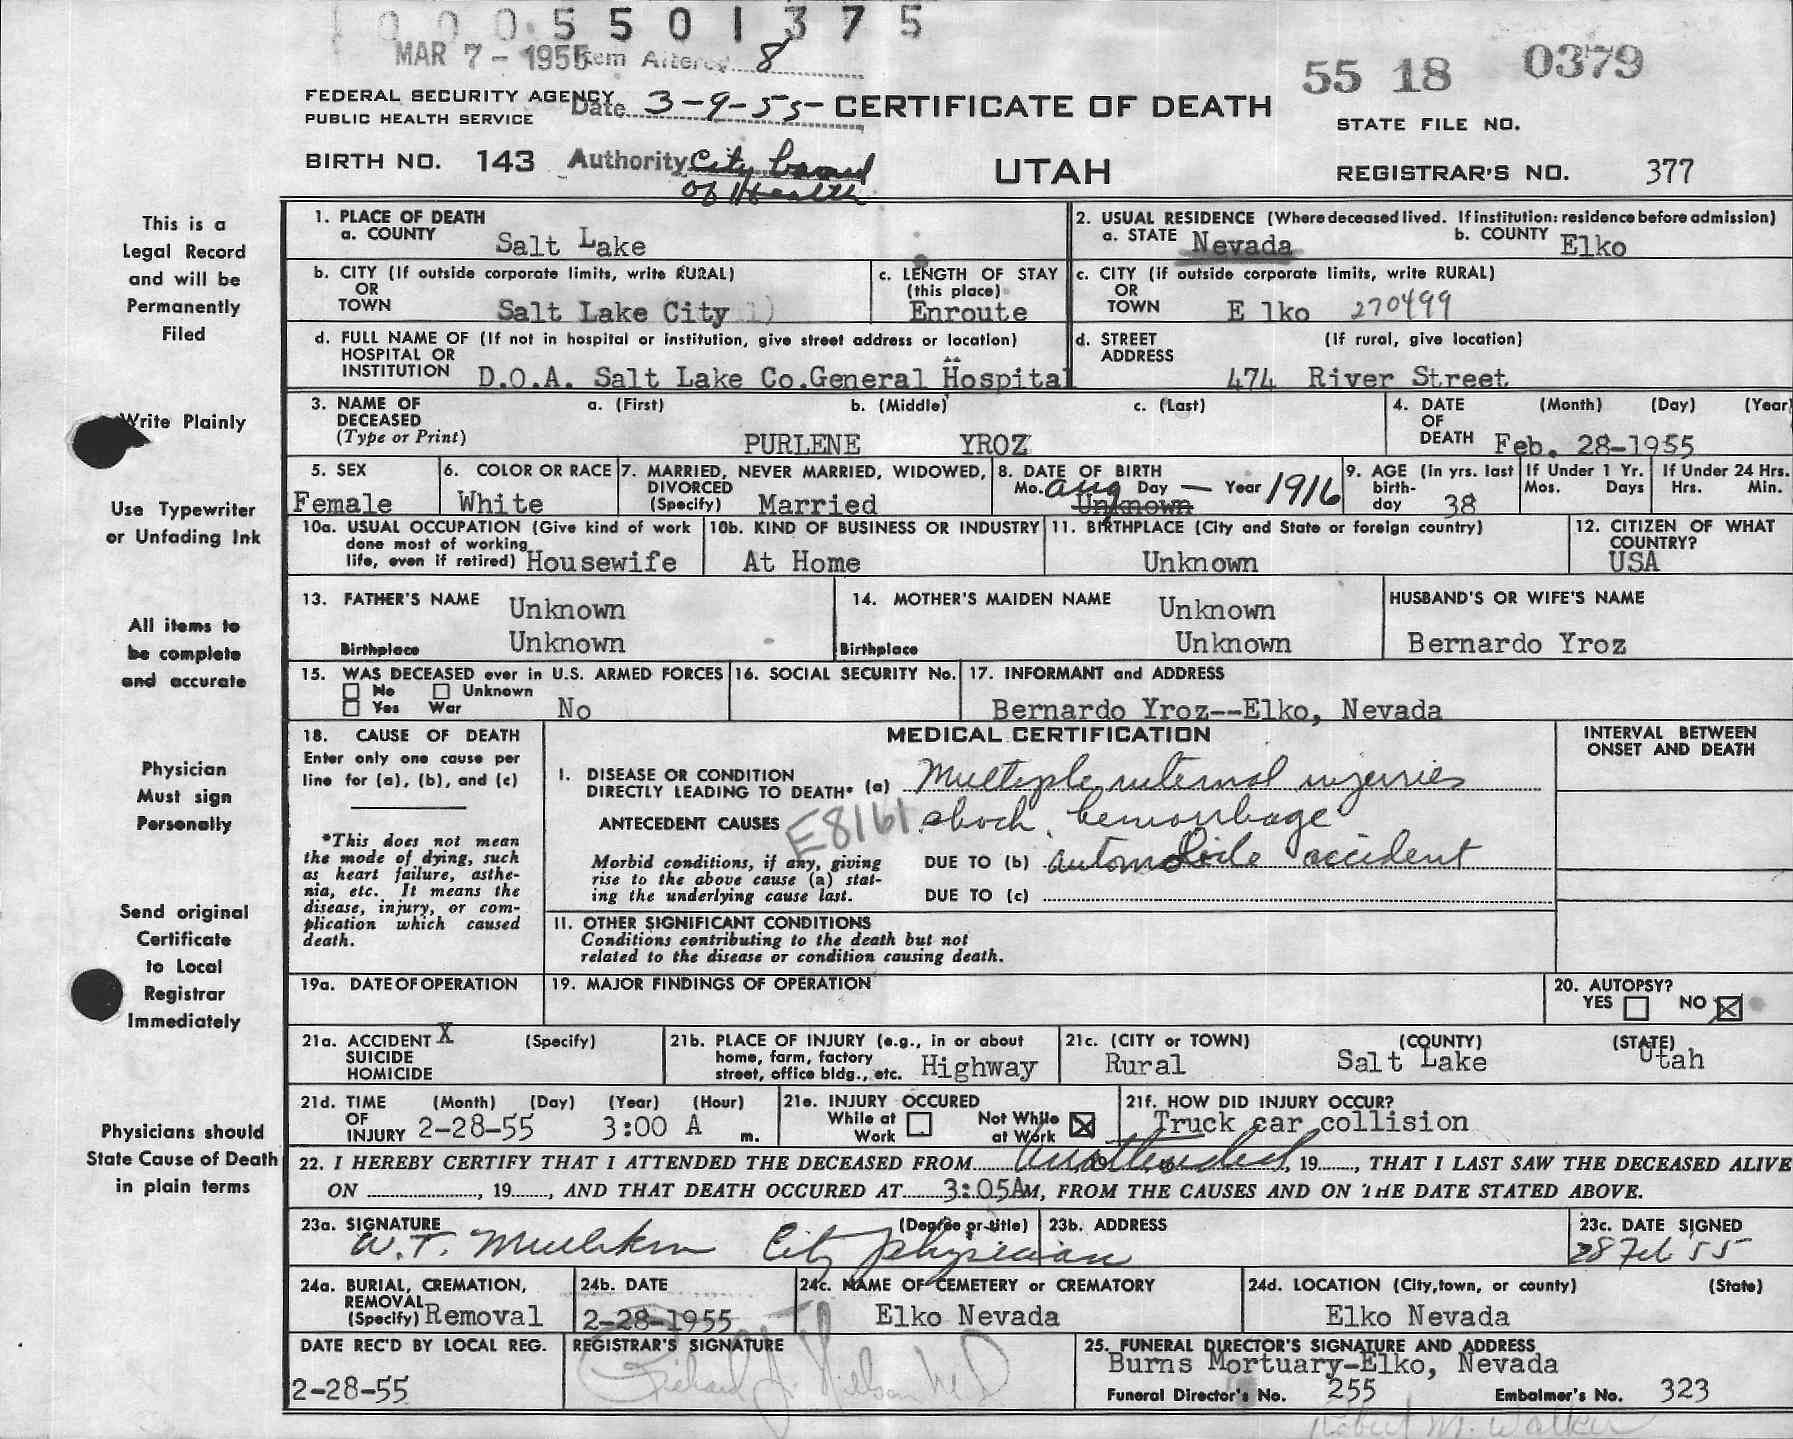 0005501375
MAR 7 - 1955 Item Altered 8
55 18 0379
FEDERAL SECURITY AGENCY
PUBLIC HEALTH SERVICE
Date 3-9-55- CERTIFICATE OF DEATH
STATE FILE NO.
BIRTH NO. 143 Authority City Board of Health
UTAH
REGISTRAR'S NO. 377
This is a
Legal Record
and will be
Permanently
Filed
Write Plainly
Use Typewriter
or Unfading Ink
All items to
be complete
and accurate
Physician
Must sign
Personally
Send original
Certificate
to Local
Registrar
Immediately
Physicians should
State Cause of Death
in plain terms
1. PLACE OF DEATH
a. COUNTY Salt Lake
2. USUAL RESIDENCE (Where deceased lived. If institution: residence before admission)
a. STATE Nevada b. COUNTY Elko
b. CITY (If outside corporate limits, write RURAL)
OR
TOWN Salt Lake City
c. LENGTH OF STAY
(this place)
Enroute
c. CITY (if outside corporate limits, write RURAL)
OR
TOWN Elko 270499
d. FULL NAME OF (If not in hospital or institution, give street address or location)
HOSPITAL OR
INSTITUTION D.O.A. Salt Lake Co.General Hospital
d. STREET (If rural, give location)
ADDRESS
474 River Street
3. NAME OF a. (First) b. (Middle) c. (Last)
DECEASED
(Type or Print) PURLENE YROZ
4. DATE (Month) (Day) (Year)
OF
DEATH Feb. 28-1955
5. SEX
Female
6. COLOR OR RACE
White
7. MARRIED, NEVER MARRIED, WIDOWED,
DIVORCED
(Specify) Married
8. DATE OF BIRTH
Mo. Aug Day — Year 1916
Unknown
9. AGE (In yrs. last
birth-
day 38
If Under 1 Yr.
Mos. Days
If Under 24 Hrs.
Hrs. Min.
10a. USUAL OCCUPATION (Give kind of work
done most of working
life, even if retired) Housewife
10b. KIND OF BUSINESS OR INDUSTRY
At Home
11. BIRTHPLACE (City and State or foreign country)
Unknown
12. CITIZEN OF WHAT
COUNTRY?
USA
13. FATHER'S NAME Unknown
Birthplace Unknown
14. MOTHER'S MAIDEN NAME Unknown
Birthplace Unknown
HUSBAND'S OR WIFE'S NAME
Bernardo Yroz
15. WAS DECEASED ever in U.S. ARMED FORCES
No Unknown
Yes War No
16. SOCIAL SECURITY No.
17. INFORMANT and ADDRESS
Bernardo Yroz--Elko, Nevada
18. CAUSE OF DEATH
Enter only one cause per
line for (a), (b), and (c)
*This does not mean
the mode of dying, such
as heart failure, asthe-
nia, etc. It means the
disease, injury, or com-
plication which caused
death.
MEDICAL CERTIFICATION
INTERVAL BETWEEN
ONSET AND DEATH
I. DISEASE OR CONDITION
DIRECTLY LEADING TO DEATH* (a) Multiple internal injuries
ANTECEDENT CAUSES E8161 shock, hemorrhage
Morbid conditions, if any, giving
rise to the above cause (a) stat-
ing the underlying cause last.
DUE TO (b) automobile accident
DUE TO (c)
II. OTHER SIGNIFICANT CONDITIONS
Conditions contributing to the death but not
related to the disease or condition causing death.
19a. DATE OF OPERATION
19. MAJOR FINDINGS OF OPERATION
20. AUTOPSY?
YES NO X
21a. ACCIDENT X (Specify)
SUICIDE
HOMICIDE
21b. PLACE OF INJURY (e.g., in or about
home, farm, factory
street, office bldg., etc. Highway
21c. (CITY or TOWN) (COUNTY) (STATE)
Rural Salt Lake Utah
21d. TIME (Month) (Day) (Year) (Hour)
OF
INJURY 2-28-55 3:00 A m.
21e. INJURY OCCURED
While at Work Not While at Work X
21f. HOW DID INJURY OCCUR?
Truck car collision
22. I HEREBY CERTIFY THAT I ATTENDED THE DECEASED FROM Unattended, 19, THAT I LAST SAW THE DECEASED ALIVE
ON , 19, AND THAT DEATH OCCURED AT 3:05AM, FROM THE CAUSES AND ON THE DATE STATED ABOVE.
23a. SIGNATURE (Degree or title)
W.T. City Physician
23b. ADDRESS
23c. DATE SIGNED
28 Feb 55
24a. BURIAL, CREMATION,
REMOVAL
(Specify) Removal
24b. DATE
2-28-1955
24c. NAME OF CEMETERY or CREMATORY
Elko Nevada
24d. LOCATION (City, town, or county) (State)
Elko Nevada
DATE REC'D BY LOCAL REG.
2-28-55
REGISTRAR'S SIGNATURE
25. FUNERAL DIRECTOR'S SIGNATURE AND ADDRESS
Burns Mortuary-Elko, Nevada
Funeral Director's No. 255 Embalmer's No. 323
Robert M. Walker